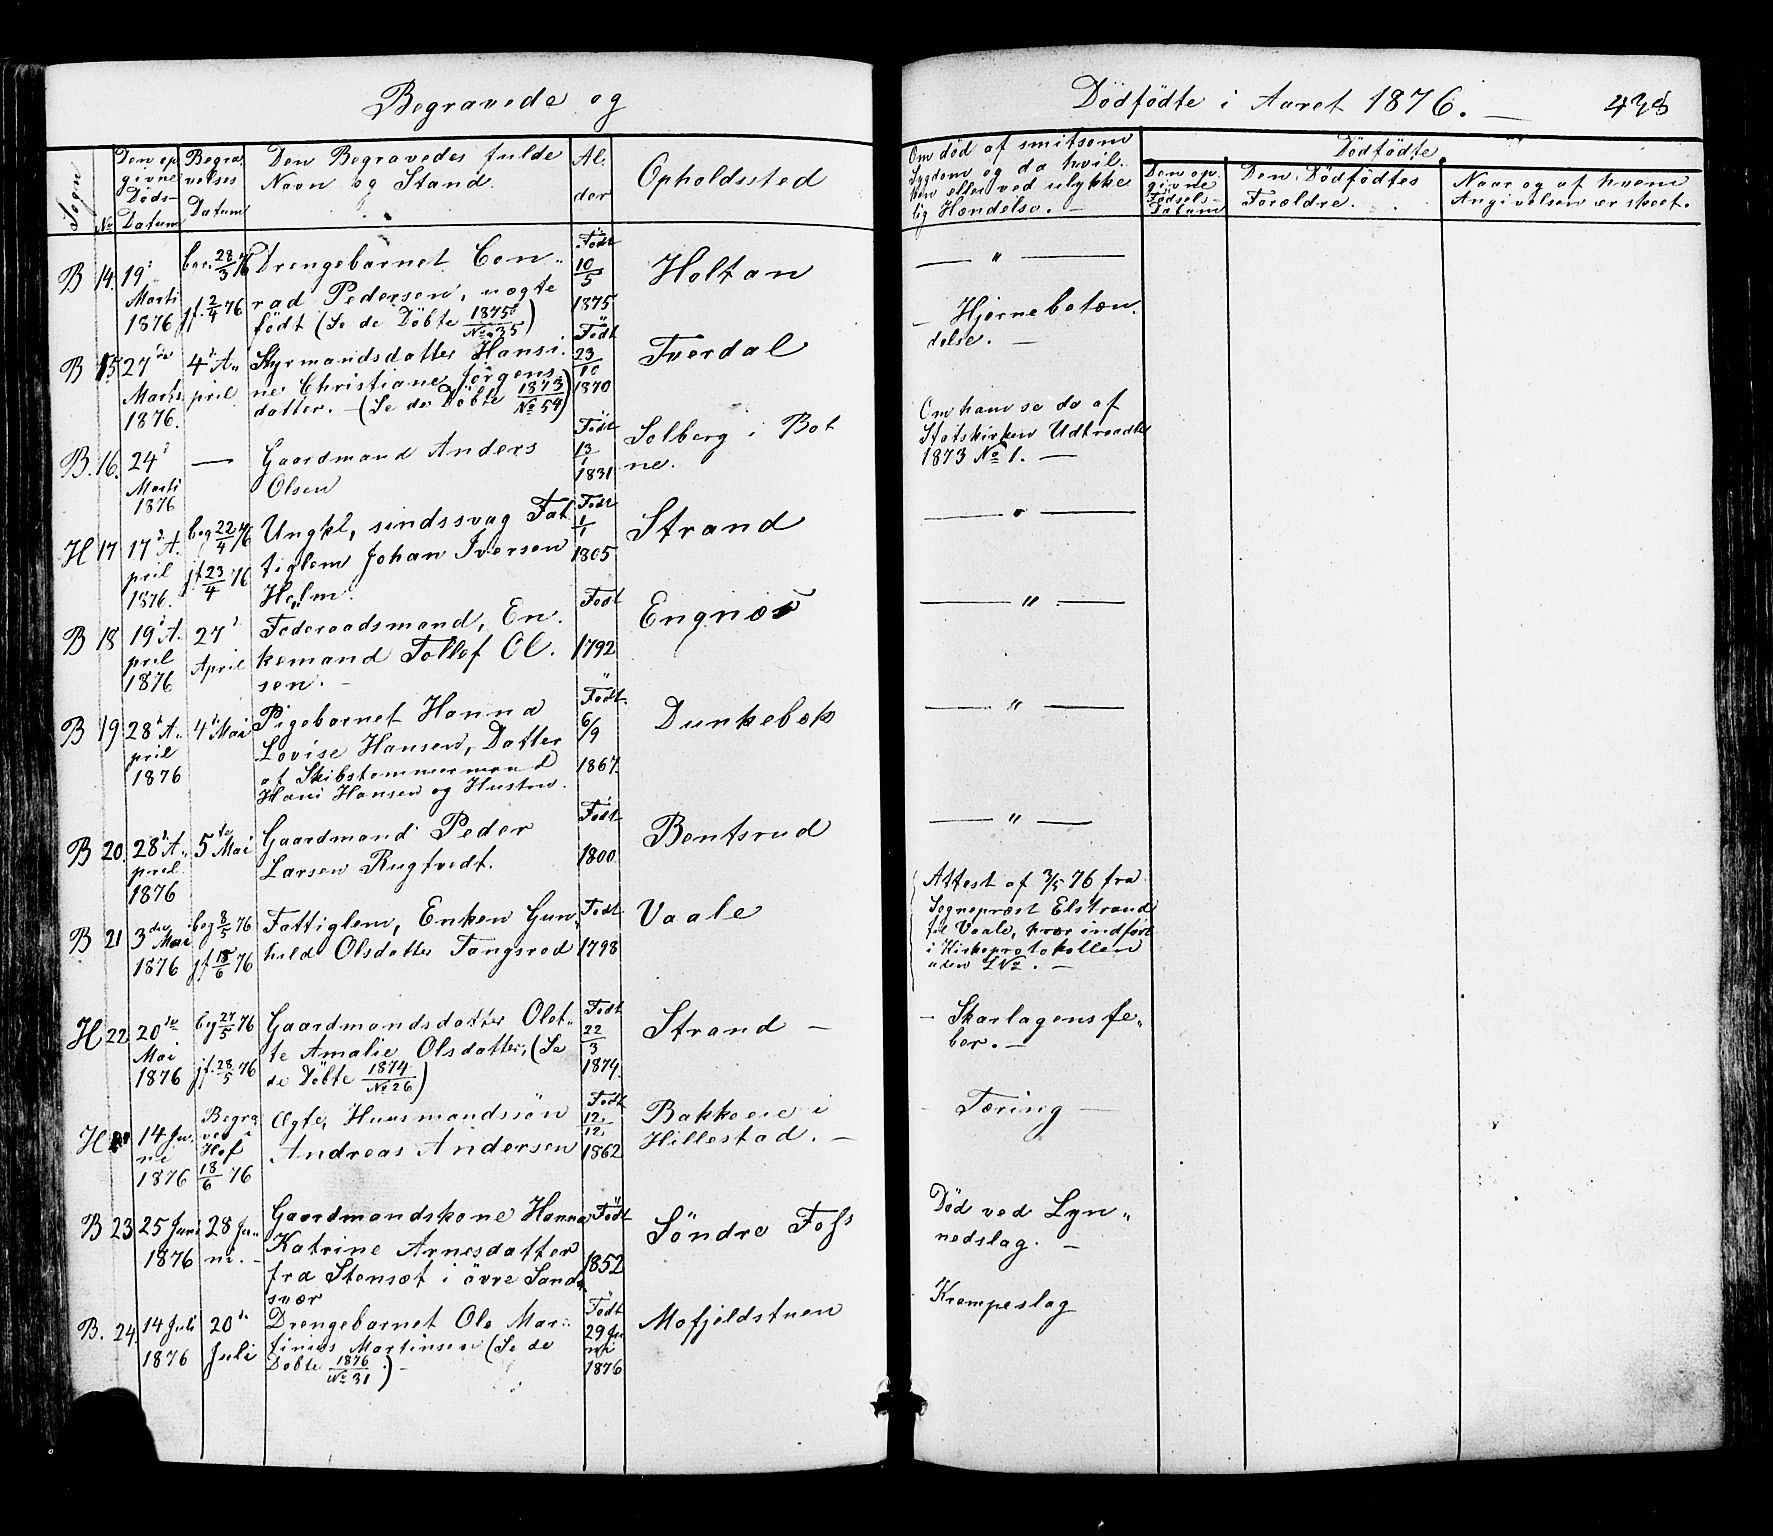 Begravede og
Dödfödte i Aaret 1876. —
Sogn
No
Den op
givne
Döds-
Datum
Begra
velses
Datum
Den Begravedes fulde
Navn og Stand.
Al.
der
Opholdssted
Om död af smitsom
Sygdom og da hvil.
ken eller ved ulykke
lig Hændelse. —
Dödfödte.
Den op.
givne
Födsels-
Datum
Den Dödfödtes
Forældre.
Naar og af hvem
Angivelsen er skeet.
B 14. 19d
Marti
1876
beg. 28/3 76
jf. 2/4 76
Drengebarnet Con„
rad Pedersen, uægte
födt (Se de Döbte 1875/No 35)
Födt
10/5
1875
Holtan
— „ —
B 15 27de
Marts
1876.
4d A„
pril
Styrmandsdatter Hansi.
ne Christiane Jörgens
datter. — (Se de Döbte 1873/No 54)
Födt
23/10
1870
Tverdal
— Hjernebetæn.
delse. —
B. 16. 24d
Marti
1876
—
Gaardmand Anders
Olsen
Födt
13/1
1831
Solberg i Bot
ne.
Om ham se de af
Statskirken Udtraadte
1873 No 1. —
H 17 17d A.
pril
1876.
beg 22/4 76
jf. 23/4 76
Ungkl, sindssvag Fat
tiglem Johan Iversen
Holm.
Födt
1/1
1805
Strand
— „ —
B 18 19d A.
pril
1876
27d
April
Föderaadsmand, En.
kemand Tollef Ol.
sen. —
Födt
1792
Engnæs
— „ —
B 19 28d A.
pril
1876
4d Mai
Pigebarnet Hanna
Lovise Hansen, Datter
af Skibstømmermand
Hans Hansen og Hustru.
Födt
6/9
1867.
Dunkebek
— „ —
B 20. 28d A„
pril
1876
5te Mai
Gaardmand Peder
Larsen Rugtvedt.
Födt
1800
Bentsrud
— „ —
B 21 3die
Mai
1876
beg 8/5 76
jf 18/6 76
Fattiglem, Enken Gun„
hild Olsdatter Tangsrød
Födt
1798
Vaale
Attest af 3/5 76 fra
Sognepræst Elstrand
til Vaale, hvor indført
i Kirkeprotokollen
uden No. —
H 22. 20de
Mai
1876
beg 27/5 76
jf. 28/5 76
Gaardmandsdatter Olet„
te Amalie Olsdatter, (Se
de Döbte 1874/No 26)
Födt
22/3
1874.
Strand —
— Skarlagensfe„
ber. —
H 14 Ju.
ni
1876
Begra
ved
Hof
18/6 76
Ægte, Huusmandssön
Andreas Andersen
Födt
12/12
1862
Bakkeeie i
Hillestad. —
— Tæring —
B 23 25 Juni
1876
28 Ju„
ni. —
Gaardmandskone Hanna
Katrine Arnesdatter
fra Stensæt i övre Sands„
svær
Födt
1852
Söndre Foss
Död ved Lyn„
nedslag. —
B. 24. 14 Juli
1876
20de
Juli
Drengebarnet Ole Mar„
tinius Martinsen (Se de
Döbte 1876/No 31) —
Födt
29 Ju
ni
1876
Mofjeldstuen
Krampeslag